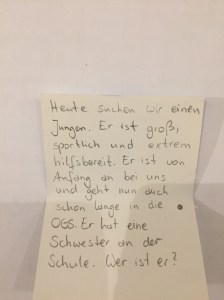 Heute suchen wir einen
Jungen. Er ist groß,
sportlich und extrem
hilfsbereit. Er ist von
Anfang an bei uns
und geht nun auch
schon lange in die
OGS. Er hat eine
Schwester an der
Schule. Wer ist er?